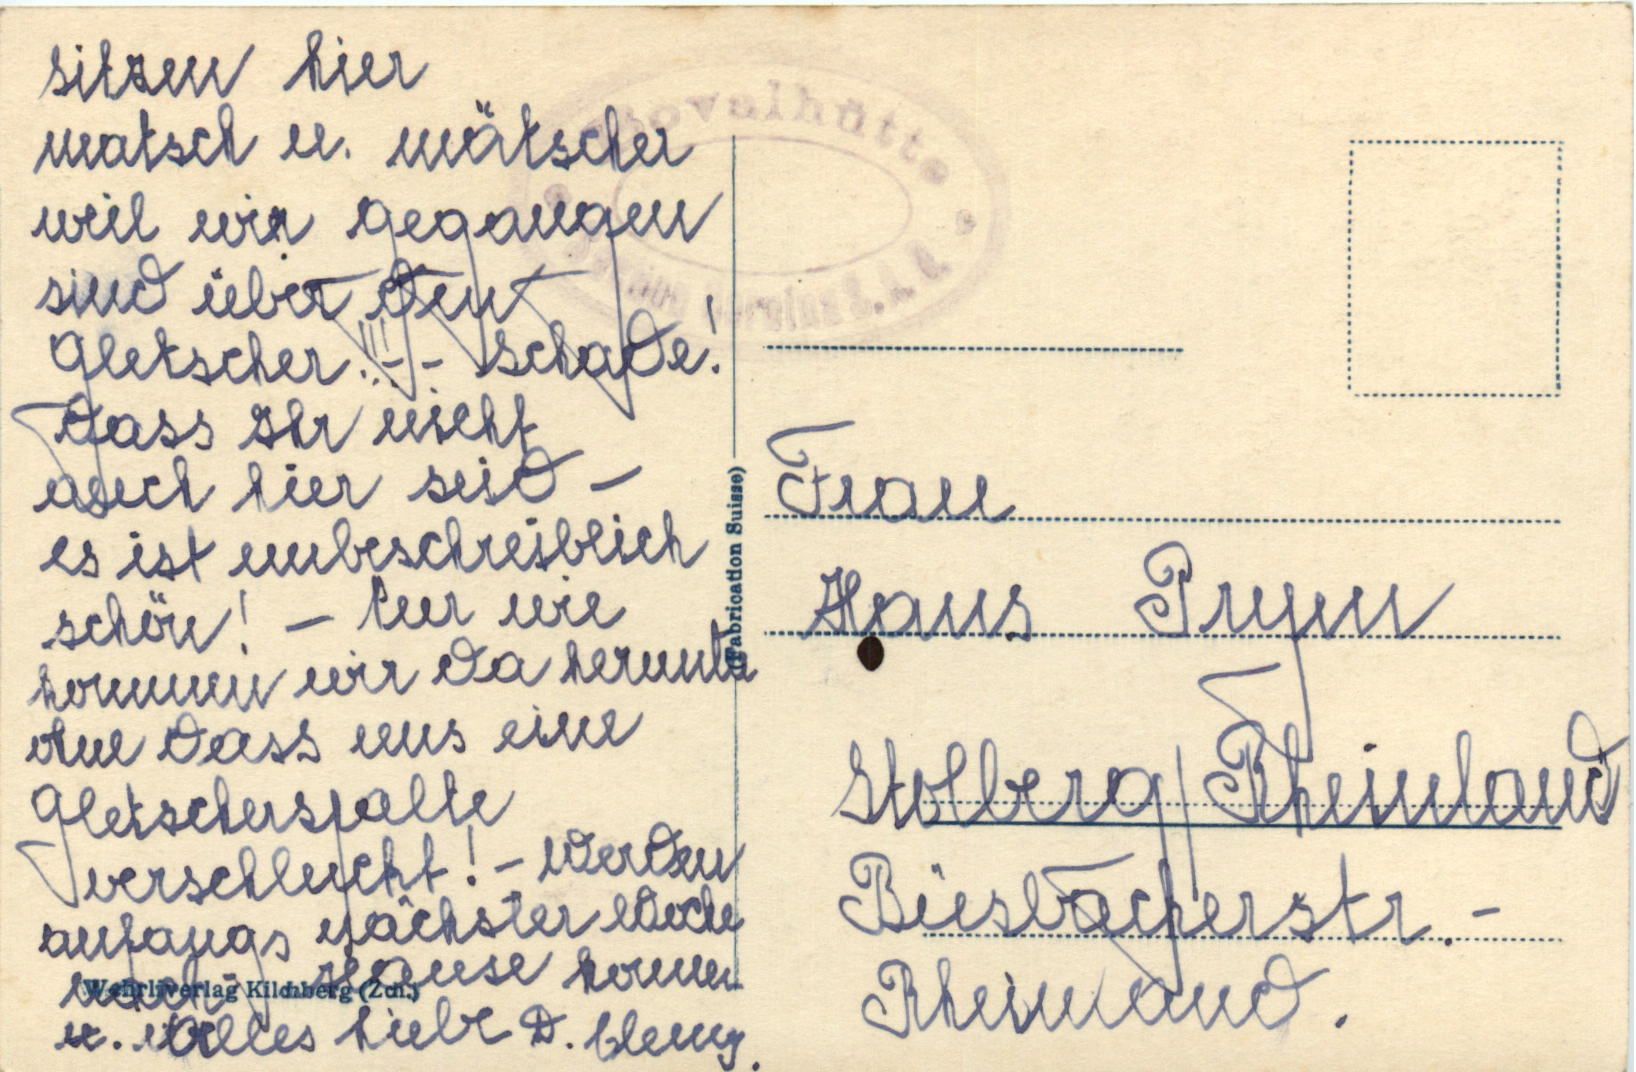 sitzen hier
matsch u. mätscher
weil wir gegangen
sind über den
Gletscher!!!-- schade!
dass Ihr nicht
auch hier seid –
es ist unbeschreiblich
schön! – Nur wie
kommen wir da herunter
ohne dass uns eine
Gletscherspalte
verschluckt! – Werden
anfangs nächster Woche
nach Hause kommen
u. Alles Liebe D.
Wehrliverlag Kilchberg (Zch.)
(Fabrication Suisse)
Bovalhütte
S.A.C. Bernina
Frau
Hans Prym
Stolberg / Rheinland
Büsbacherstr. –
Rheinland.